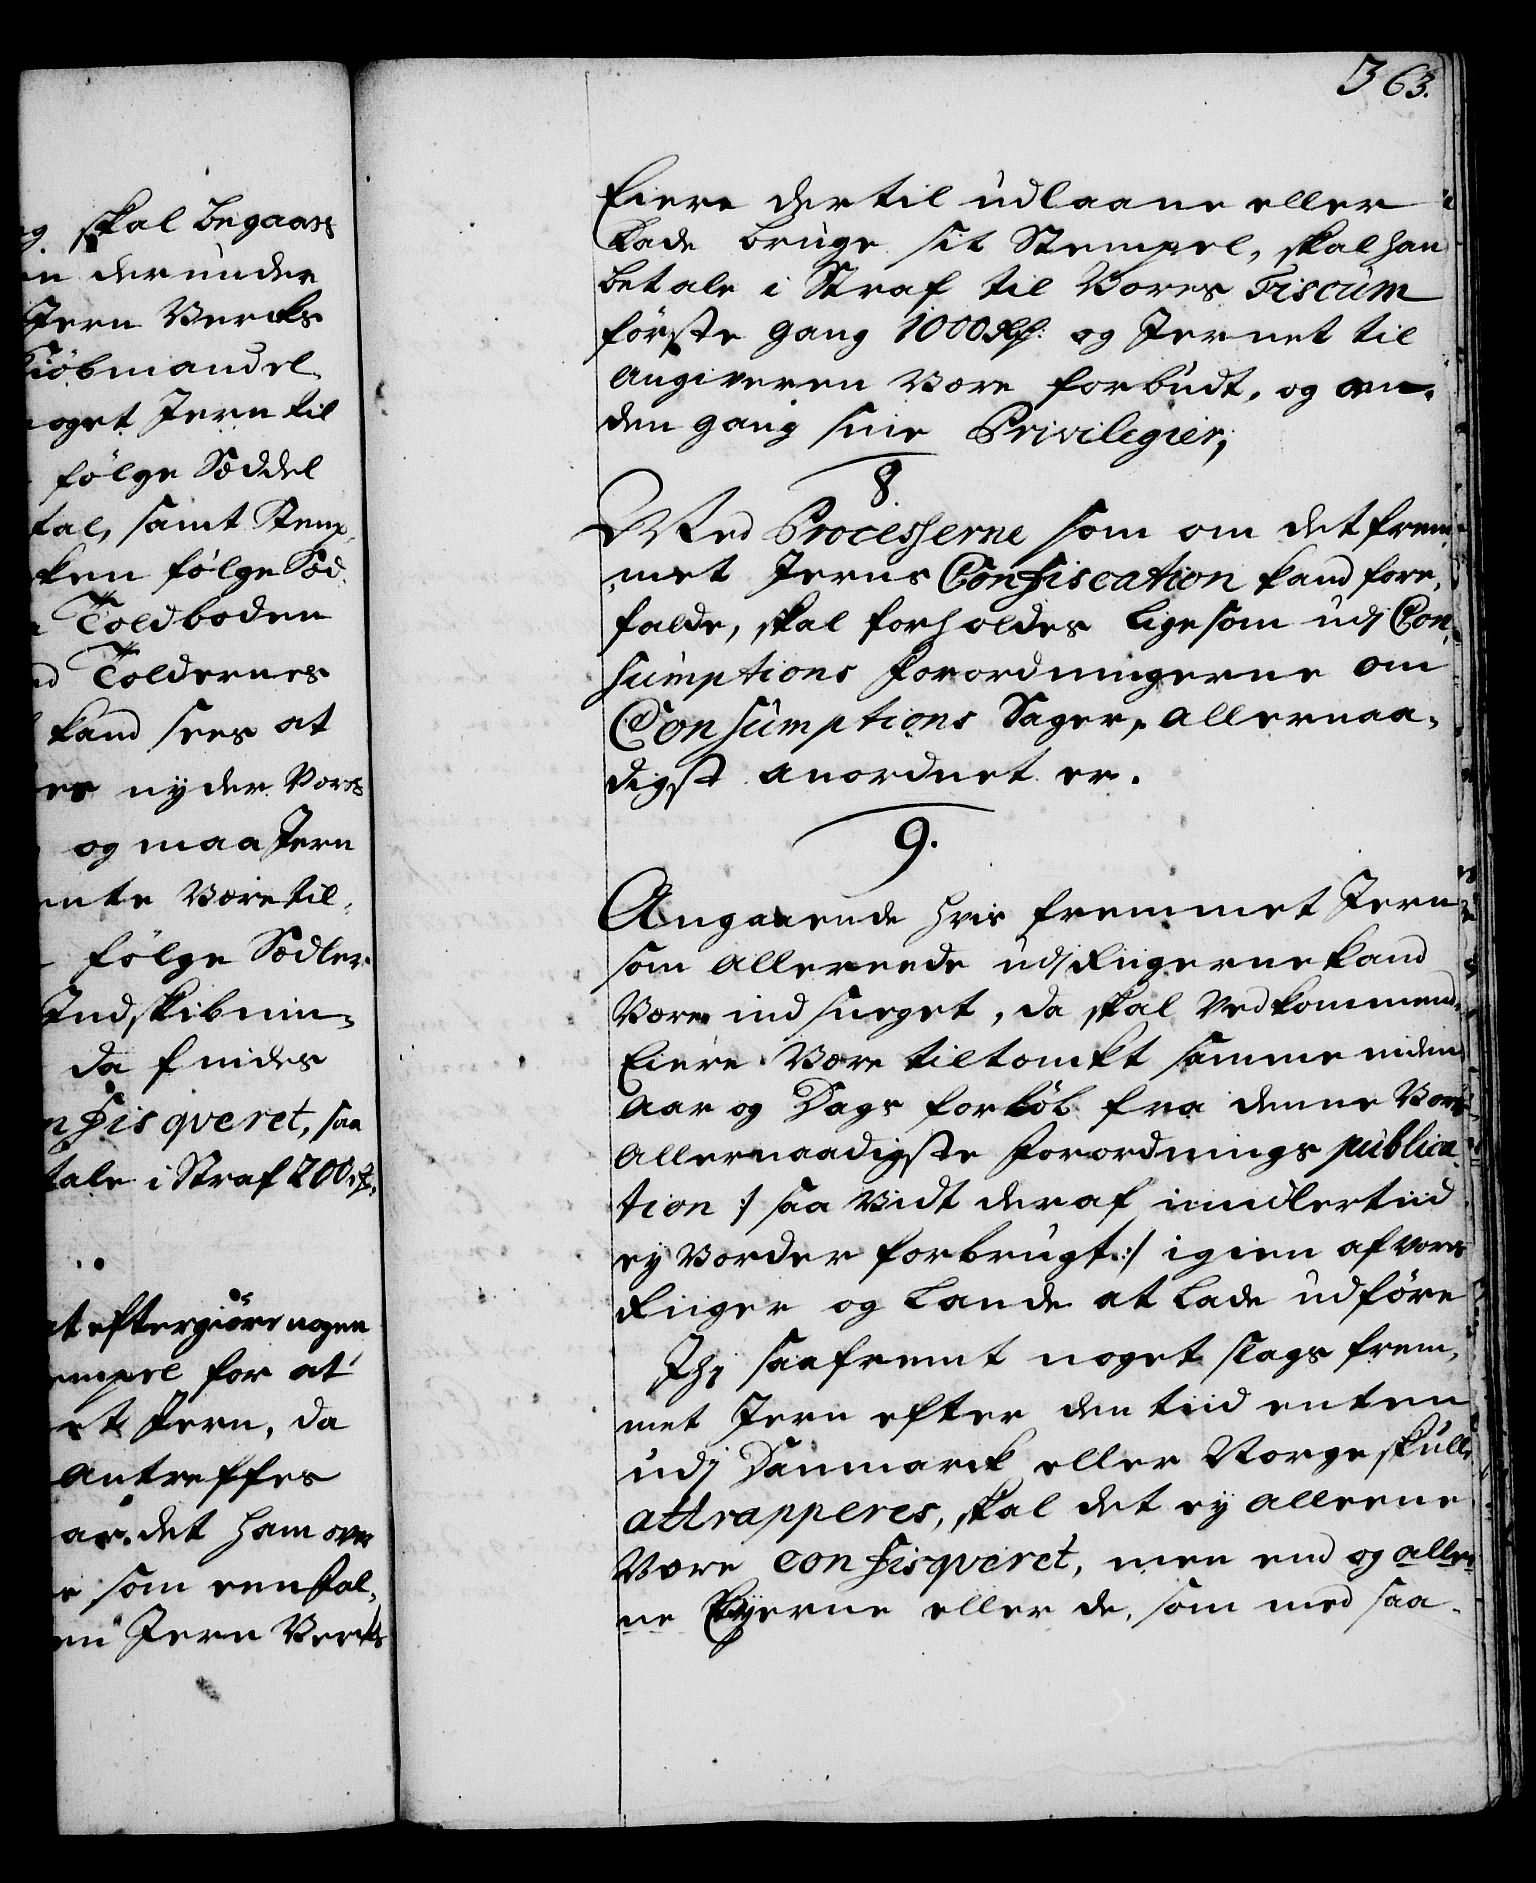 363.
g. skal begaaes
en derunder
Jern Vercks
Kiöbmandel
noget Jern til
følge Sæddel
tal, samt Stemp,
ken følge Sæd,
Toldboden
ed Toldernes
kand sees at
es nyder Vores
og maa Jern
ente Være til,
følge Sædler
Indskibnin,
da findes
nfisqveret, saa
tale i Straf 200 Rdr,
at eftergiöre nogen
empel for at
et Jern, da
antreffes
ar det ham over
e som een fal,
en Jern Vercks
Eiere dertil udlaane eller
Lade bruge sit Stempel, skal han
betale i Straf til Vores Fiscum
förste gang 1000 Rdr: og Jernet til
Angiveren Være forbudt, og an,
den gang sine Privilegier;
8.
Med Processerne som om det frem,
met Jerns Confiscation kand fore,
falde, skal forholdes ligesom udj Con,
sumptions Forordningerne om
Consumptions Sager, Allernaa,
digst anordnet er.
9.
Angaaende hvis fremmet Jern
som allereede udj Rigerne kand
Være indsneget, da skal Vedkommend,
Eiere Være tiltænkt samme inden
Aar og Dags forlöb fra denne Vores
Allernaadigste Forordnings publica,
tion :/ saa Vidt deraf imidlertiid
ey Vorder forbrugt :/ igien af Vores
Riiger og Lande at lade udföre
Thj saafremt noget slags frem,
met Jern efter den tiid enten
udj Danmarck eller Norge skulle
attrapperes, skal det ey alleene
Være confisqveret, men end og alle,
ne Eyerne eller de, som med saa,